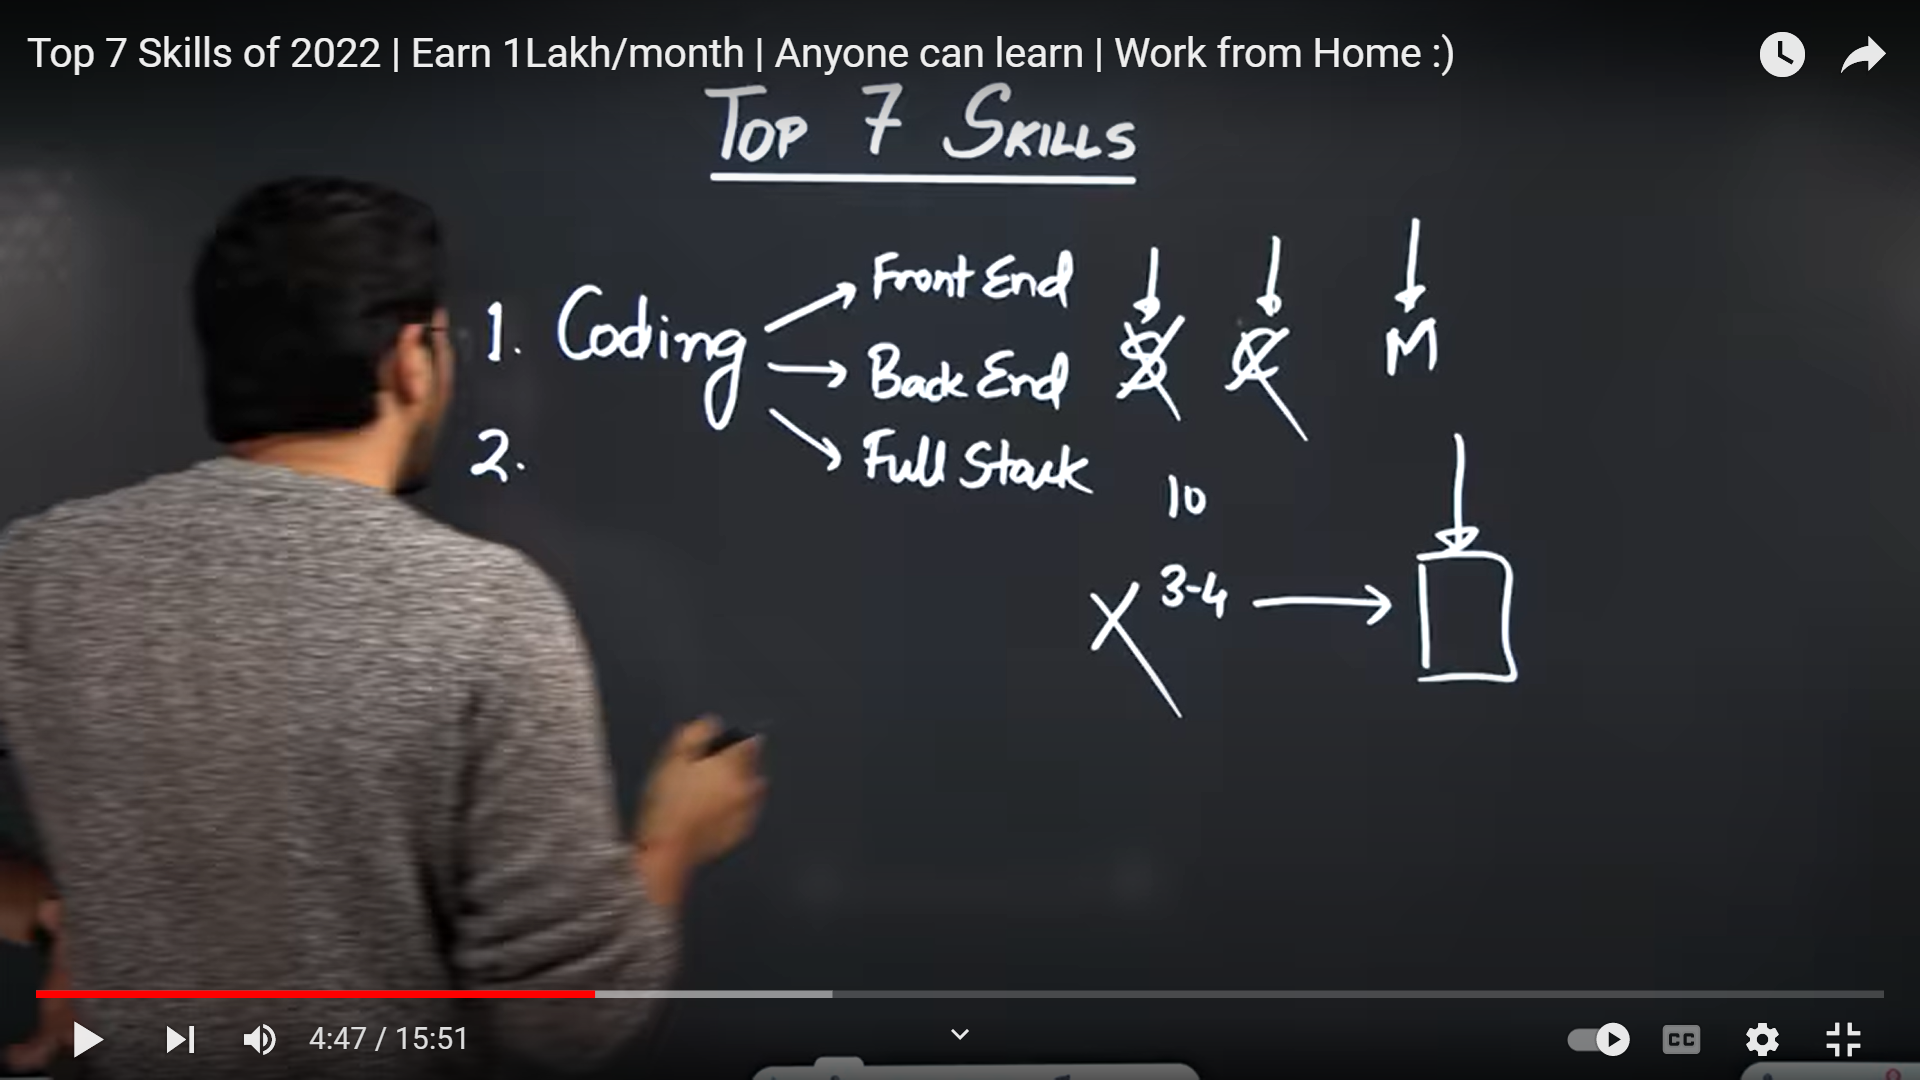 Top 7 Skills of 2022 | Earn 1Lakh/month | Anyone can learn | Work from Home :)
TOP 7 SKILLS
1. Coding
Front End
Back End
Full Stack
M
2.
10
3-4
4:47 / 15:51
CC